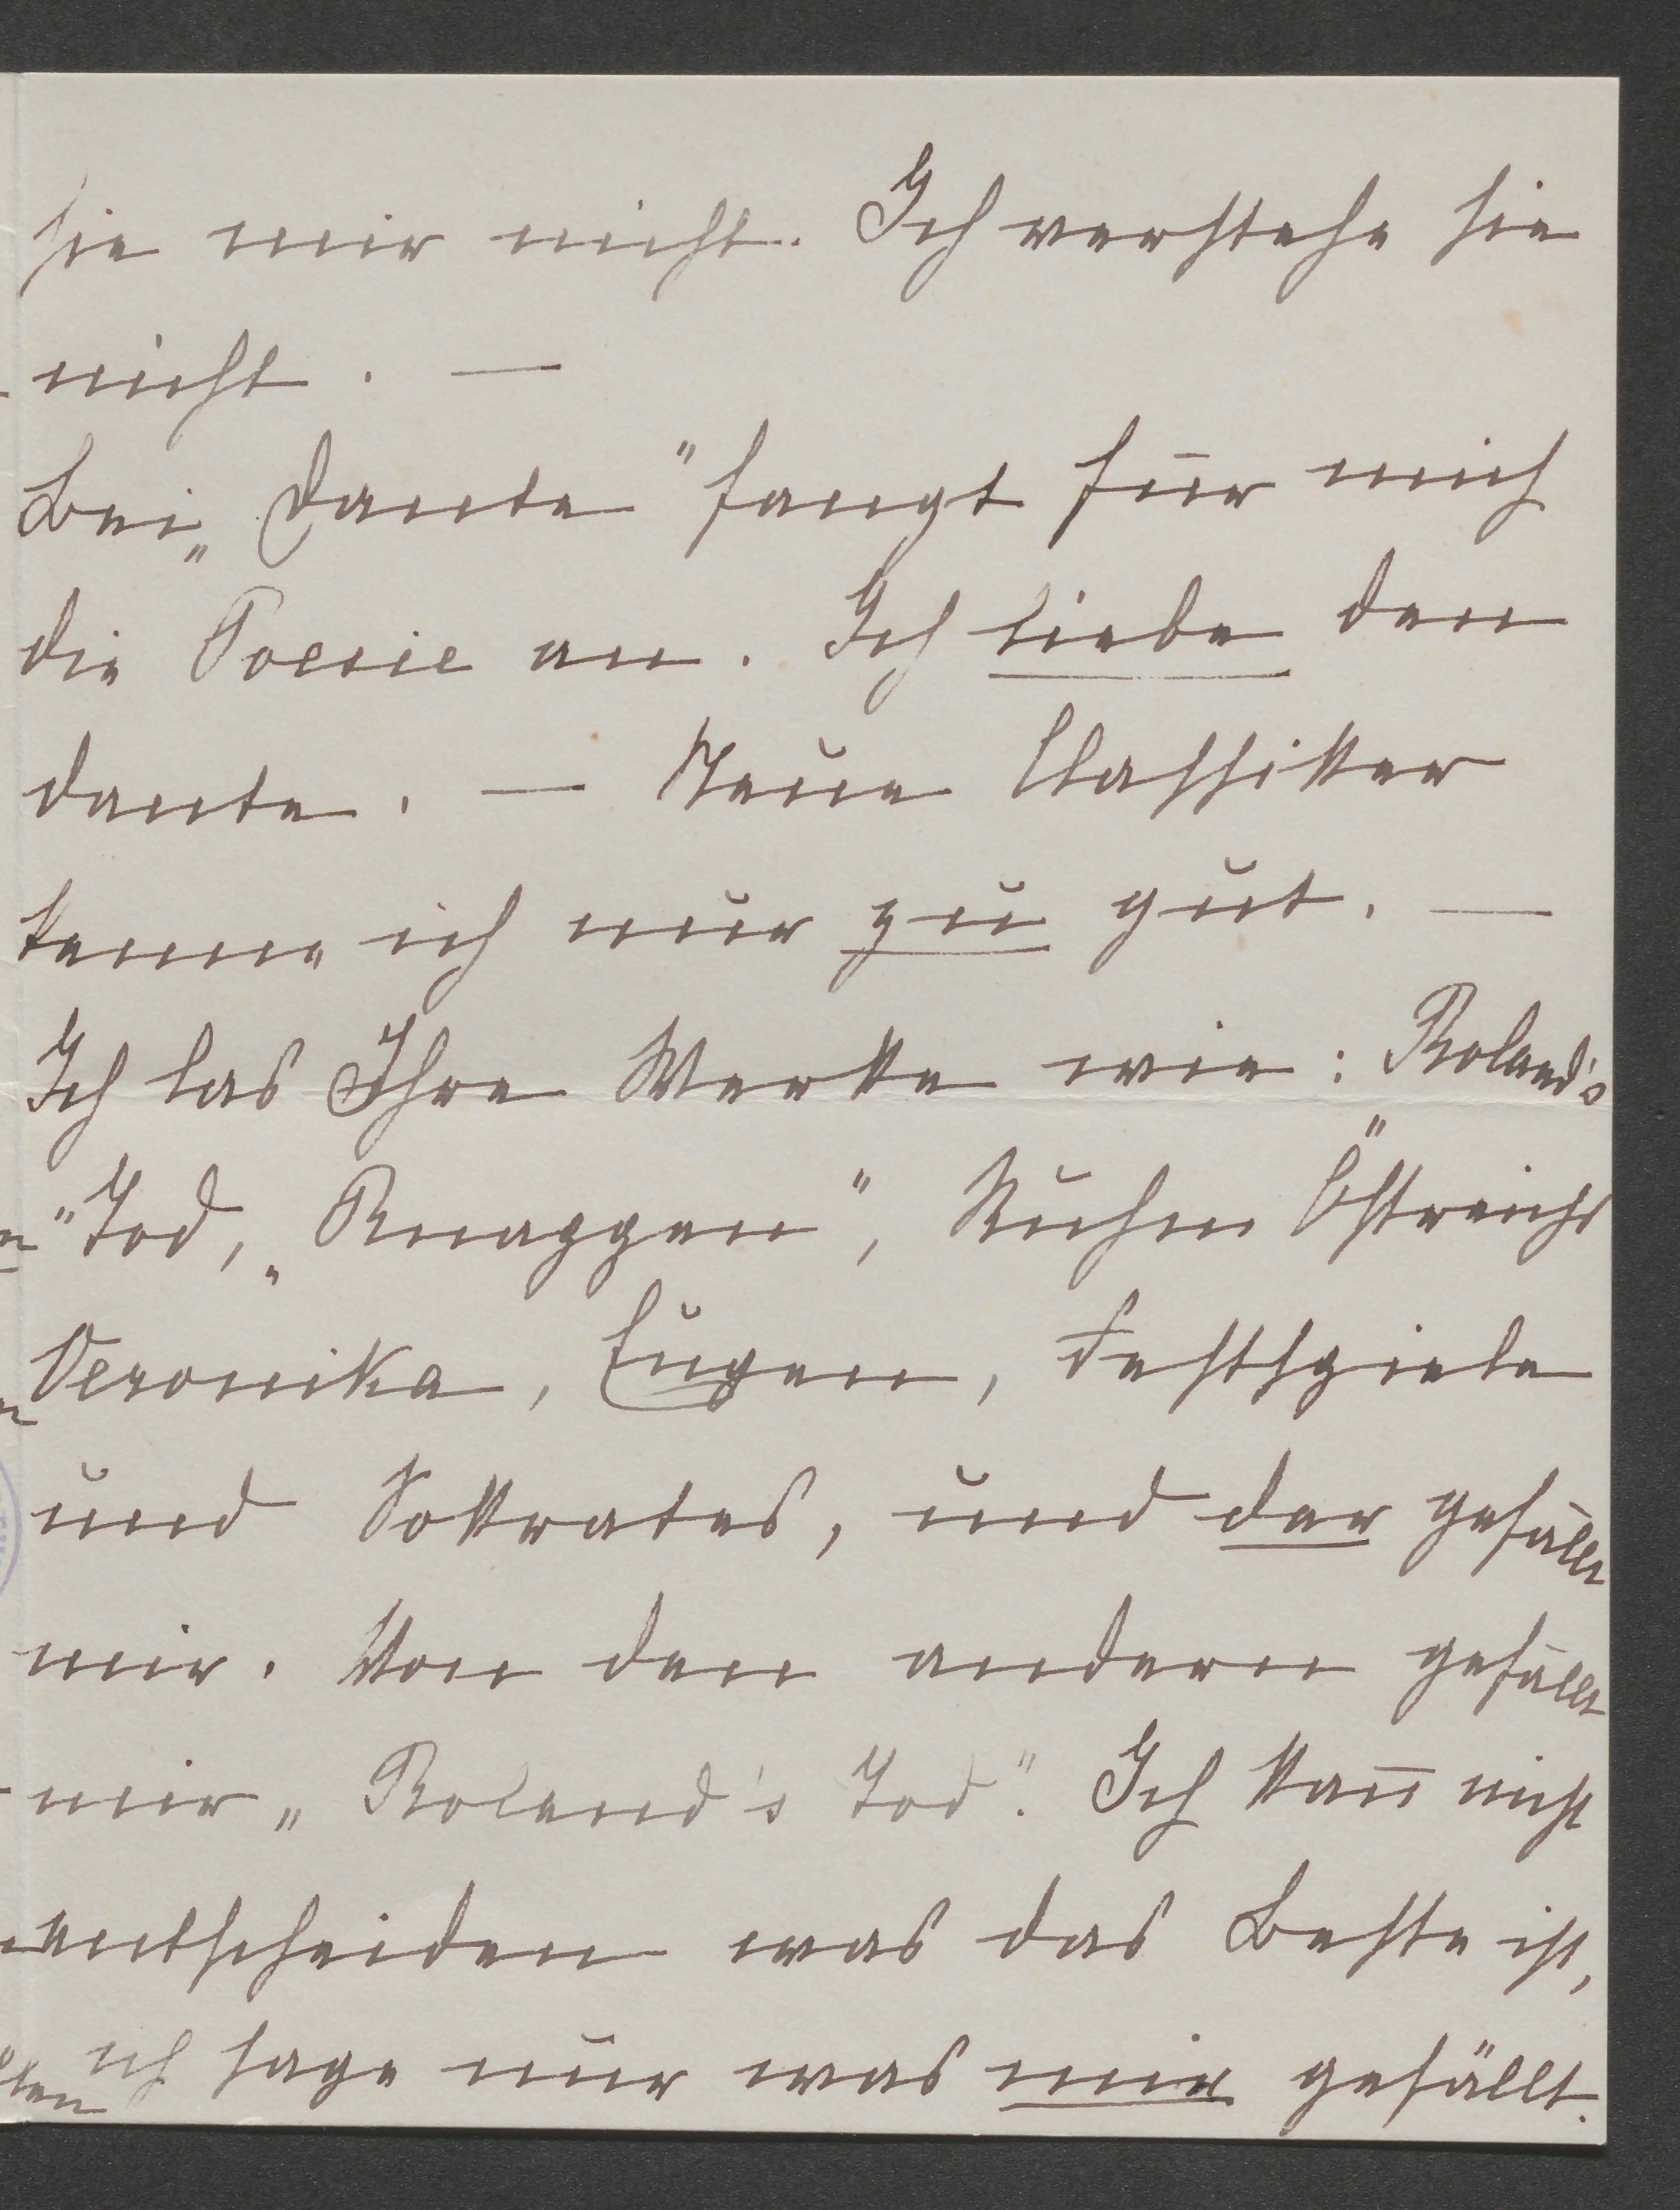 sie mir nicht. Ich verstehe sie
nicht. —
Bei „Dante" fangt für mich
die Poesie an. Ich liebe den
Dante. — Neue Classiker
kenne ich nur zu gut. —
Ich las Ihre Werke wie: Roland's
"Tod, „Knappen", Ruhm Östreichs
Veronika, Eugen, Festspiele
und Sokrates, und der gefällt
mir. Von den andern gefällt
mir „Roland's Tod". Ich kan̄ nicht
entscheiden was das Beste ist,
ich sage nur was mir gefällt.